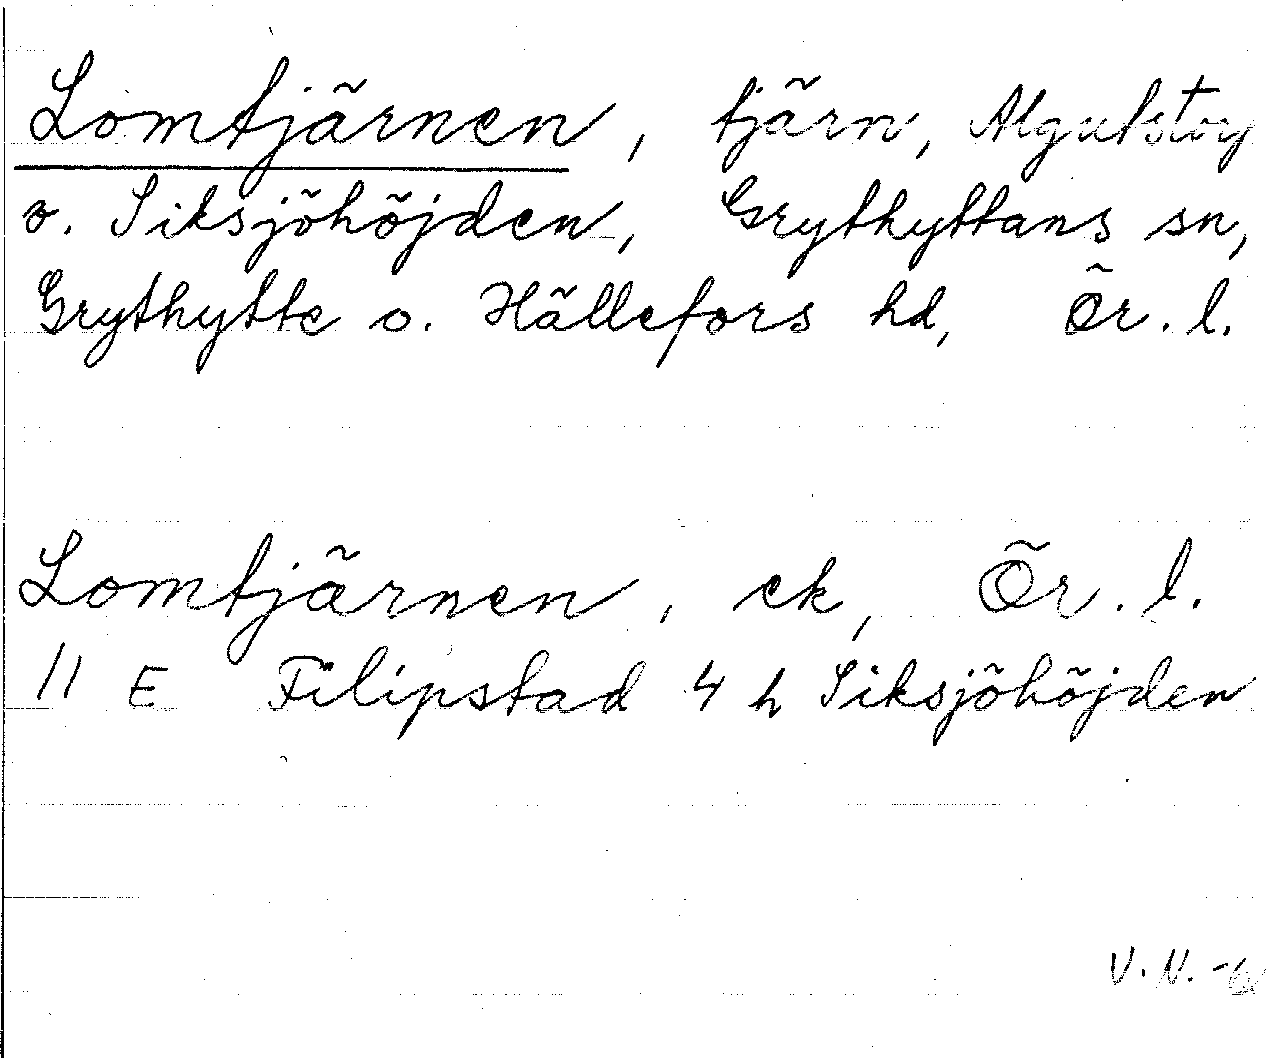 Lomtjärnen, tjärn,
o. Siksjöhöjden, Grythyttans sn,
Grythytte o. Hällefors hd, Ör. l.
Lomtjärnen, ek, Ör. l.
11 E Filipstad 4 h Siksjöhöjden
V. N.